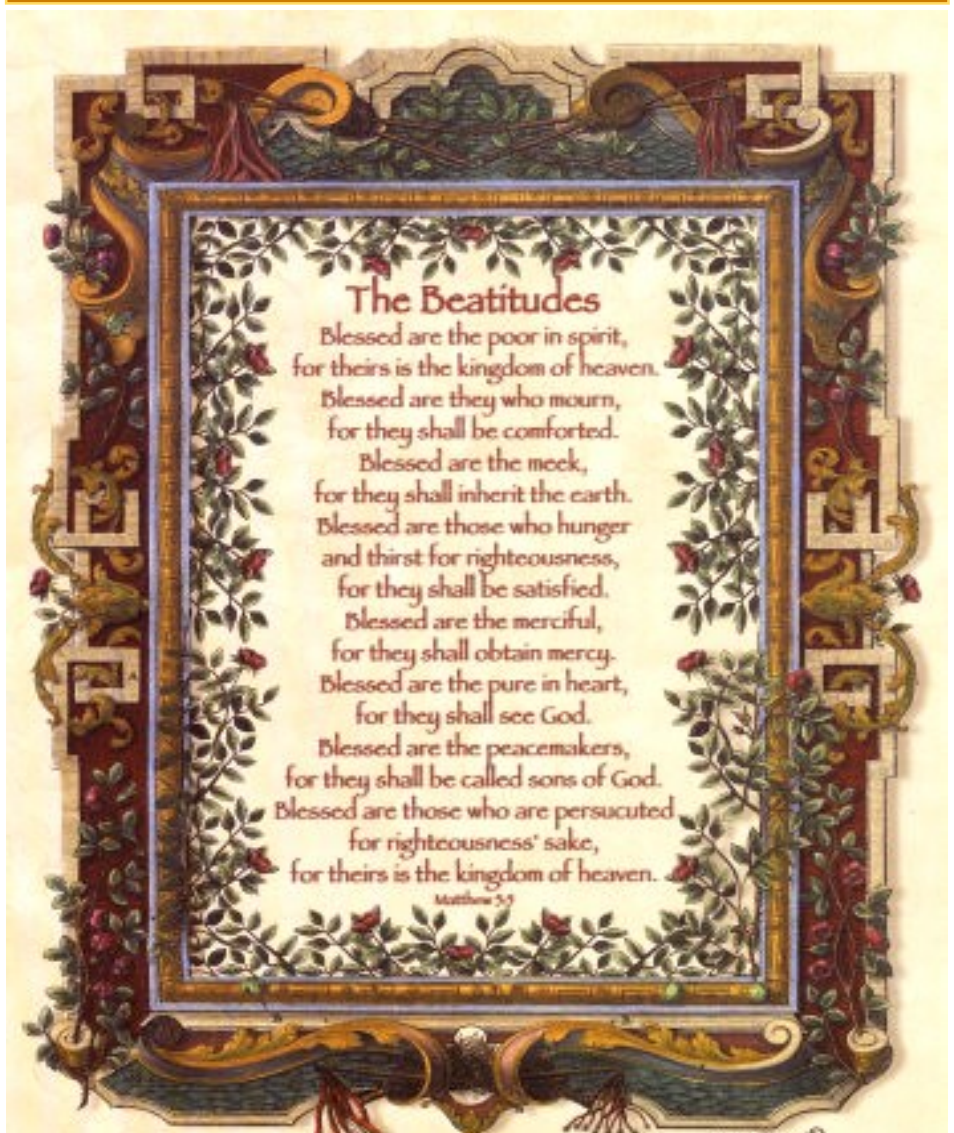 The Beatitudes
Blessed are the poor in spirit,
for theirs is the kingdom of heaven.
Blessed are they who mourn,
for they shall be comforted.
Blessed are the meek,
for they shall inherit the earth.
Blessed are those who hunger
and thirst for righteousness,
for they shall be satisfied.
Blessed are the merciful,
for they shall obtain mercy.
Blessed are the pure in heart,
for they shall see God.
Blessed are the peacemakers,
for they shall be called sons of God.
Blessed are those who are persucuted
for righteousness' sake,
for theirs is the kingdom of heaven.
Matthew 5:5